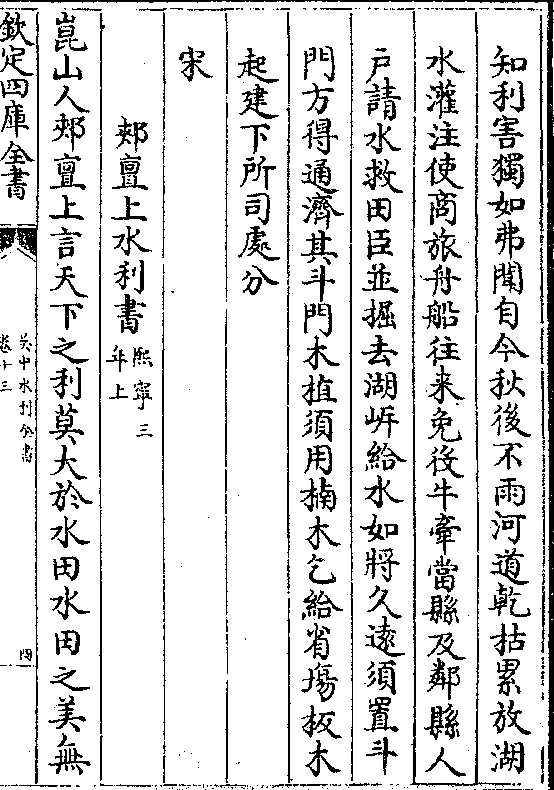 知利害獨如弗聞自今秋後不雨河道乾枯累放湖
水灌注使商旅舟船往来免役牛牽當縣及鄰縣人
戸請水救田臣並掘去湖岍給水如將久遠須置斗
門方得通濟其斗門木植須用楠木乞給省塲板木
起建下所司處分
宋
郟亶上水利書熙寧三年上
崑山人郟亶上言天下之利莫大於水田水田之美無
欽定四庫全書
吳中水利全書
卷十三
四